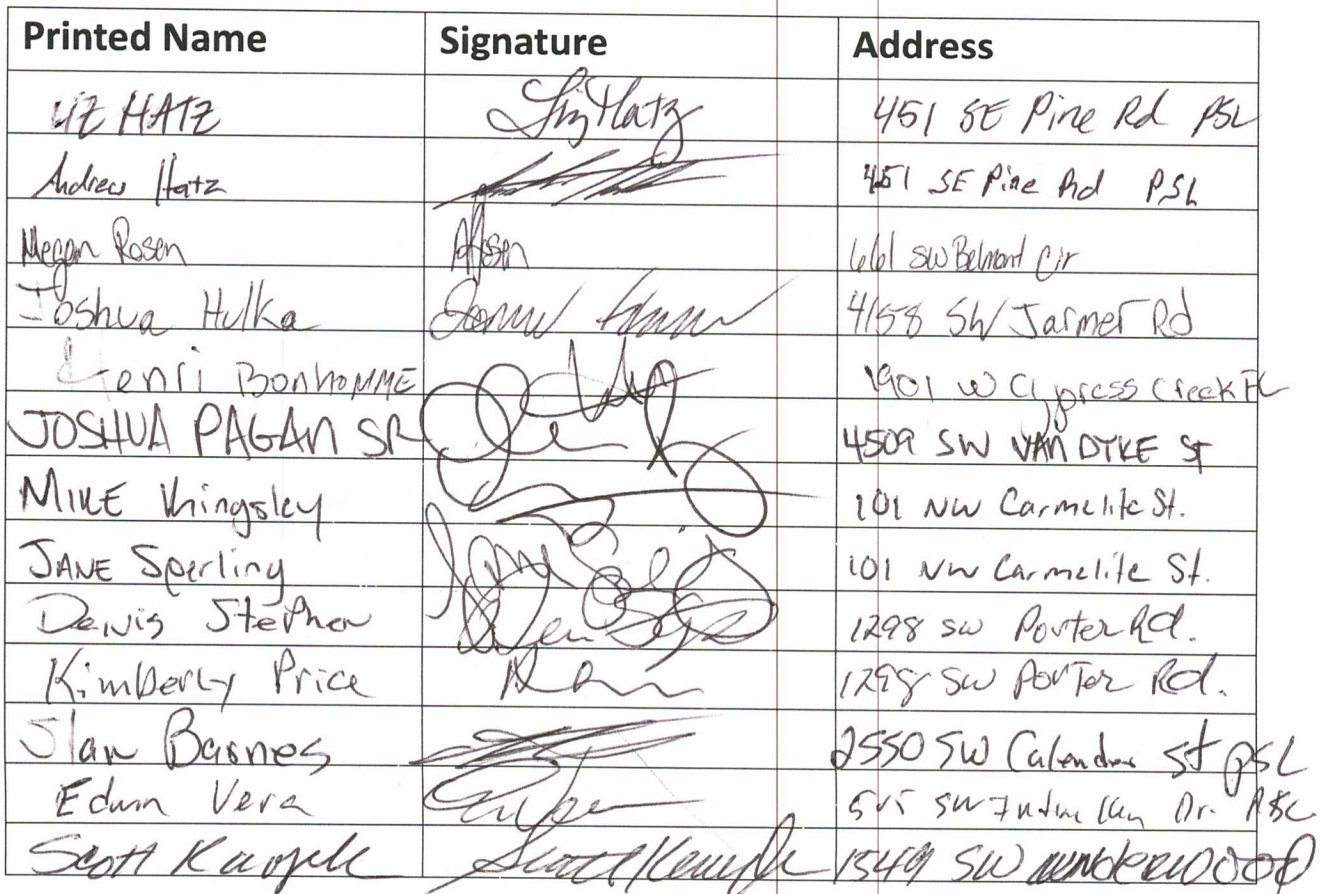 Printed Name Signature Address
LIZ HATZ Liz Hatz 451 SE Pine Rd PSL
Andrew Hatz 451 SE Pine Rd PSL
Megan Rosen 661 SW Belmont Cir
Joshua Hulka 4158 SW Jarmer Rd
Henri BonhoMME 1901 W Cypress Creek
JOSHUA PAGAN SR 4509 SW VAN DYKE ST
MIKE Khingsley 101 NW Carmelite St.
JANE Sperling 101 NW Carmelite St.
Denis Stephen 1298 SW Porter Rd.
Kimberly Price 1298 SW Porter Rd.
Barnes 2550 SW Calender St PSL
Edwin Vera SW Dr. PSL
Scott Scott 1549 SW underwood